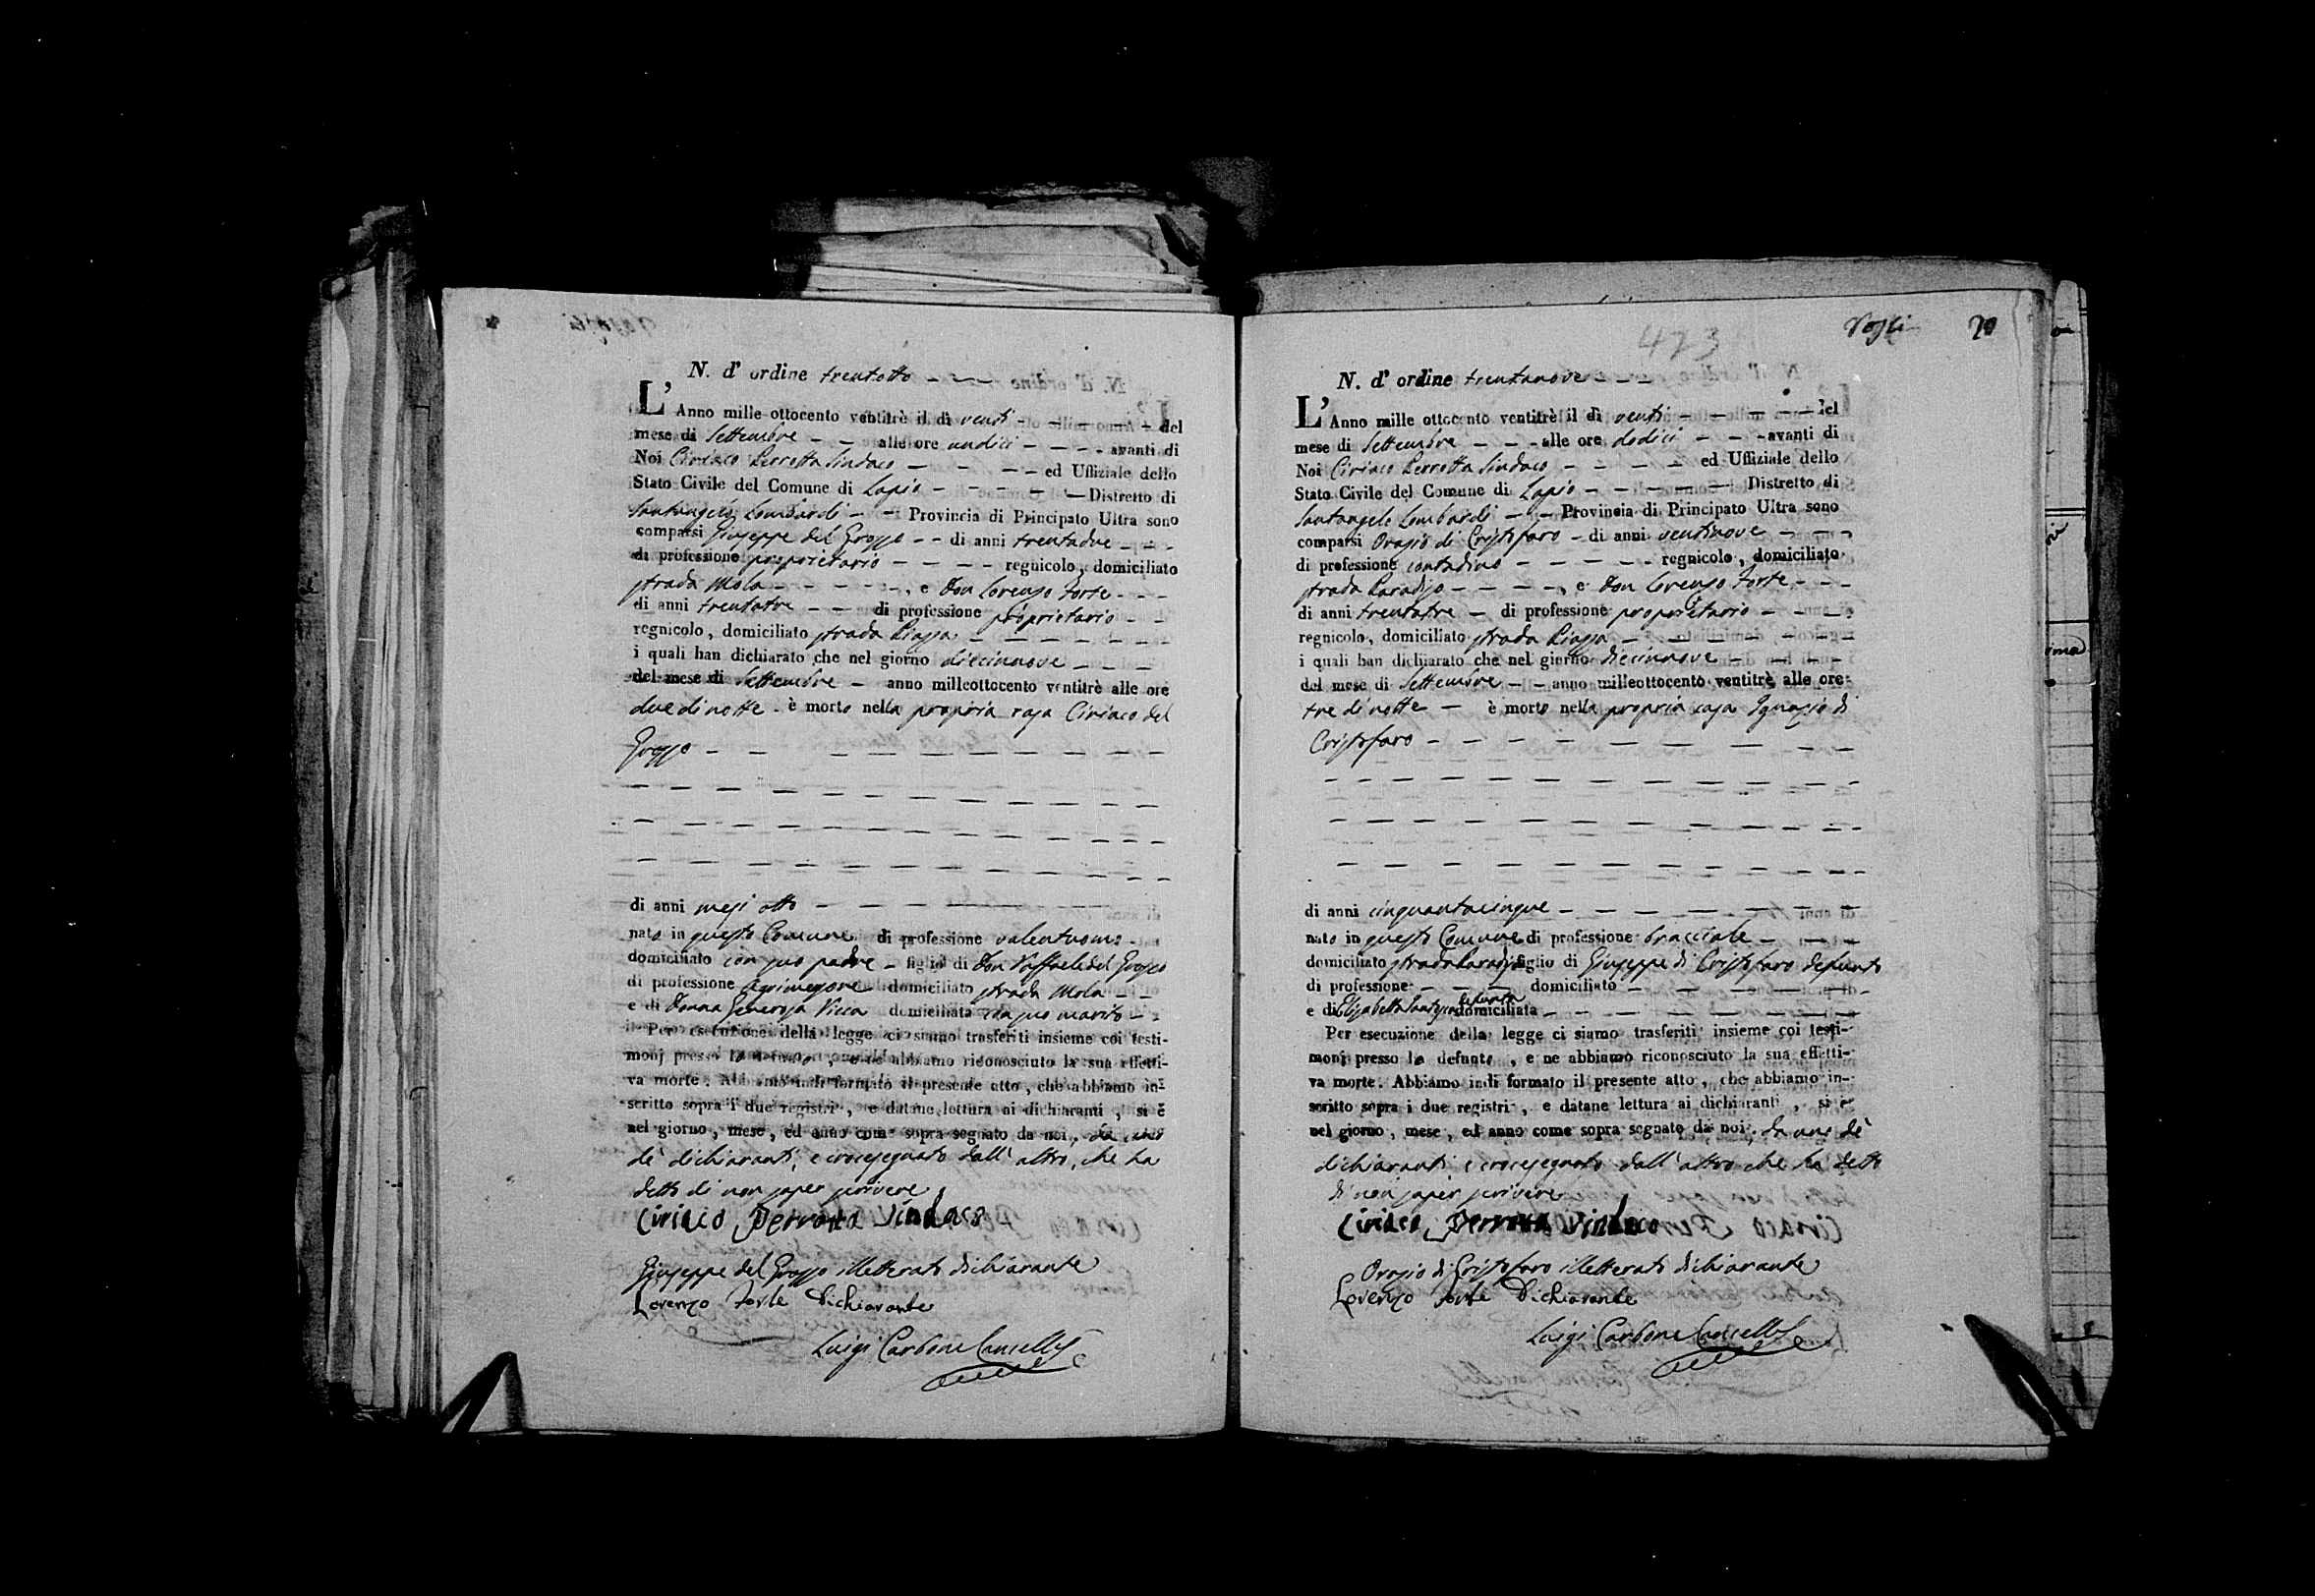 N. d' ordine trentotto
L' Anno mille ottocento ventitrè il dì venti - - - - - del
mese di Settembre - - alle ore undici - - - - avanti di
Noi Ciriaco Perrotta Sindaco - - - - ed Uffiziale dello
Stato Civile del Comune di Lapio - - - - - Distretto di
Santangelo Lombardi - - Provincia di Principato Ultra sono
comparsi Giuseppe del Grosso - - di anni trentadue - - -
di professione proprietario - - - - regnicolo, domiciliato
strada Mola - - - - - , e Don Lorenzo Forte - - -
di anni trentatre - - di professione proprietario - -
regnicolo, domiciliato strada Piazza - - - - - - -
i quali han dichiarato che nel giorno diecinnove - - -
del mese di Settembre - anno milleottocento ventitrè alle ore
due di notte - è morto nella propria casa Ciriaco del
Grosso - - - - - - - - - -
di anni mesi otto - - - - - -
nato in questo Comune di professione valentuomo -
domiciliato con suo padre - figlio di Don Raffaele del Grosso
di professione Agrimensore domiciliato strada Mola - -
e di Donna Generosa Vicca domiciliata con suo marito -
Per esecuzione della legge ci siamo trasferiti insieme coi testi-
monj presso lo defunto, e ne abbiamo riconosciuto la sua effetti-
va morte. Abbiamo indi formato il presente atto, che abbiamo in-
scritto sopra i due registri, e datane lettura ai dichiaranti, si è
nel giorno, mese, ed anno come sopra segnato da noi, da uno
de' dichiaranti, e crocesegnato dall' altro, che ha
detto di non saper scrivere
Ciriaco Perrotta Sindaco
Giuseppe del Grosso illetterato dichiarante
Lorenzo Forte Dichiarante
Luigi Carbone Cancell.
473
20
N. d' ordine trentanove - - -
L' Anno mille ottocento ventitrè il dì venti - - - - - del
mese di Settembre - - - alle ore dodici - - - avanti di
Noi Ciriaco Perrotta Sindaco - - - - - ed Uffiziale dello
Stato Civile del Comune di Lapio - - - - - Distretto di
Santangelo Lombardi - - Provincia di Principato Ultra sono
comparsi Orazio di Cristofaro - di anni ventinove - - -
di professione contadino - - - - - regnicolo, domiciliato
strada Paradiso - - - - , e Don Lorenzo Forte - - -
di anni trentatre - di professione proprietario - - - -
regnicolo, domiciliato strada Piazza - - - - - - -
i quali han dichiarato che nel giorno diecinnove - - - -
del mese di Settembre - - anno milleottocento ventitrè alle ore
tre di notte - è morto nella propria casa Ignazio di
Cristofaro - - - - - - - - - -
di anni cinquantacinque - - - - - - - -
nato in questo Comune di professione bracciale - - -
domiciliato strada Paradiso figlio di Giuseppe di Cristofaro defunto
di professione - - - domiciliato - - - - - -
e di Elisabetta defunta domiciliata - - - - - - -
Per esecuzione della legge ci siamo trasferiti insieme coi testi-
monj presso lo defunto, e ne abbiamo riconosciuto la sua effetti-
va morte. Abbiamo indi formato il presente atto, che abbiamo in-
scritto sopra i due registri, e datane lettura ai dichiaranti, si è
nel giorno, mese, ed anno come sopra segnato da noi, da uno de'
dichiaranti e crocesegnato dall' altro che ha detto
di non saper scrivere
Ciriaco Perrotta Sindaco
Orazio di Cristofaro illetterato dichiarante
Lorenzo Forte Dichiarante
Luigi Carbone Cancell.